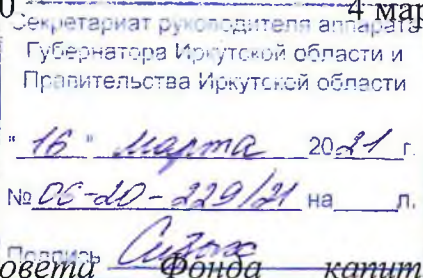 0
4 мар
Секретариат руководителя аппарата
Губернатора Иркутской области и
Правительства Иркутской области
"16" марта 2021 г.
№ 06-20-229/21 на ____ л.
Подпись
овета Фонда капит